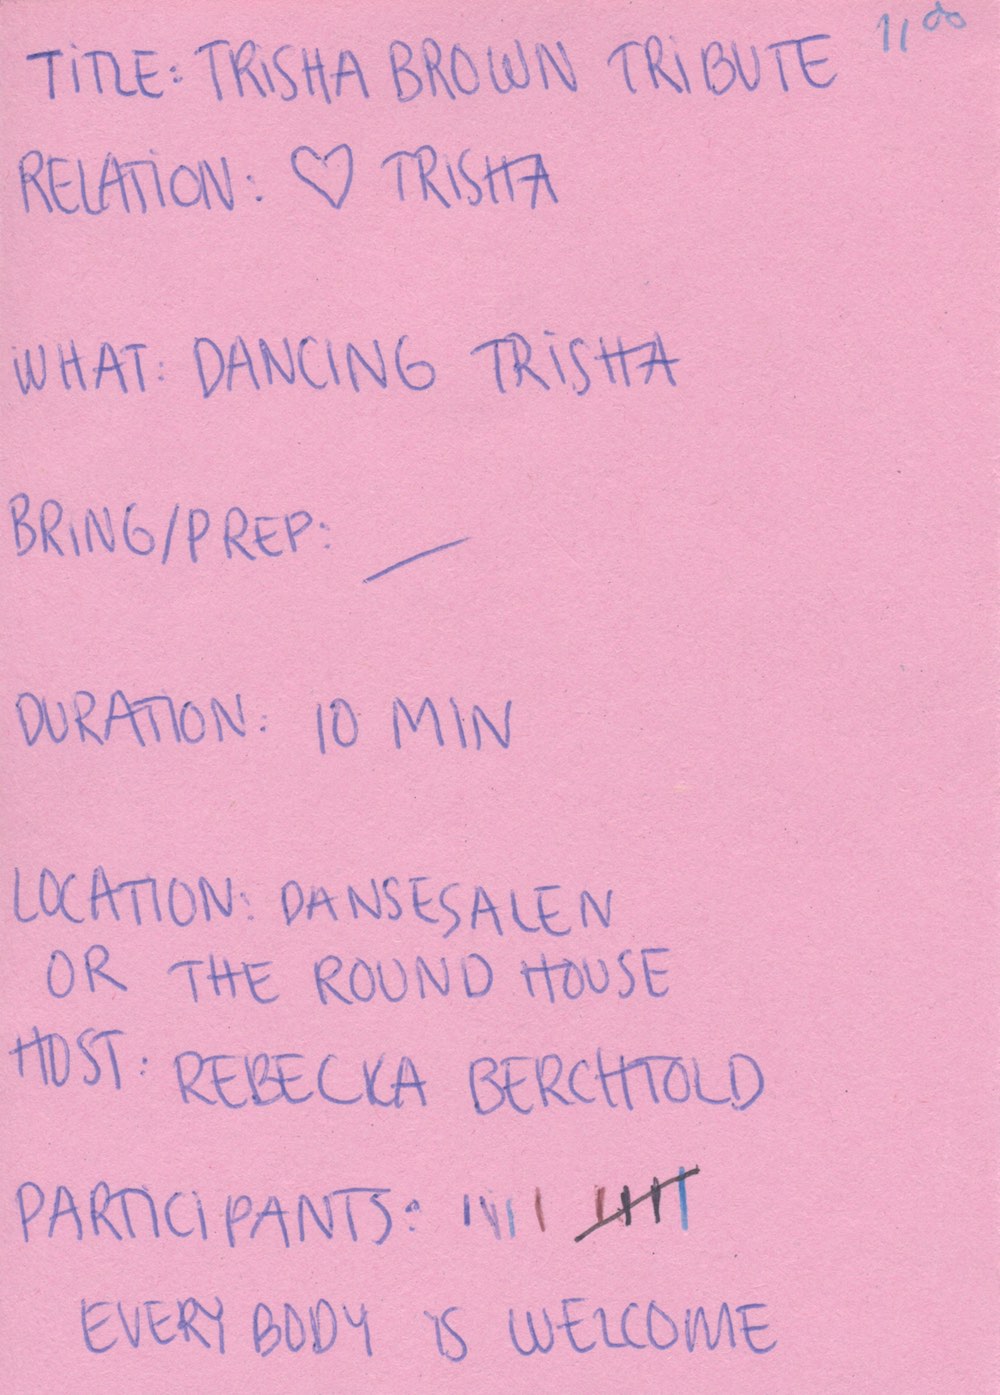 11 00
TITLE: TRISHA BROWN TRIBUTE
RELATION: ♡ TRISHA
WHAT: DANCING TRISHA
BRING/PREP: —
DURATION: 10 MIN
LOCATION: DANSESALEN
OR THE ROUND HOUSE
HOST: REBECKA BERCHTOLD
PARTICIPANTS:
EVERYBODY IS WELCOME